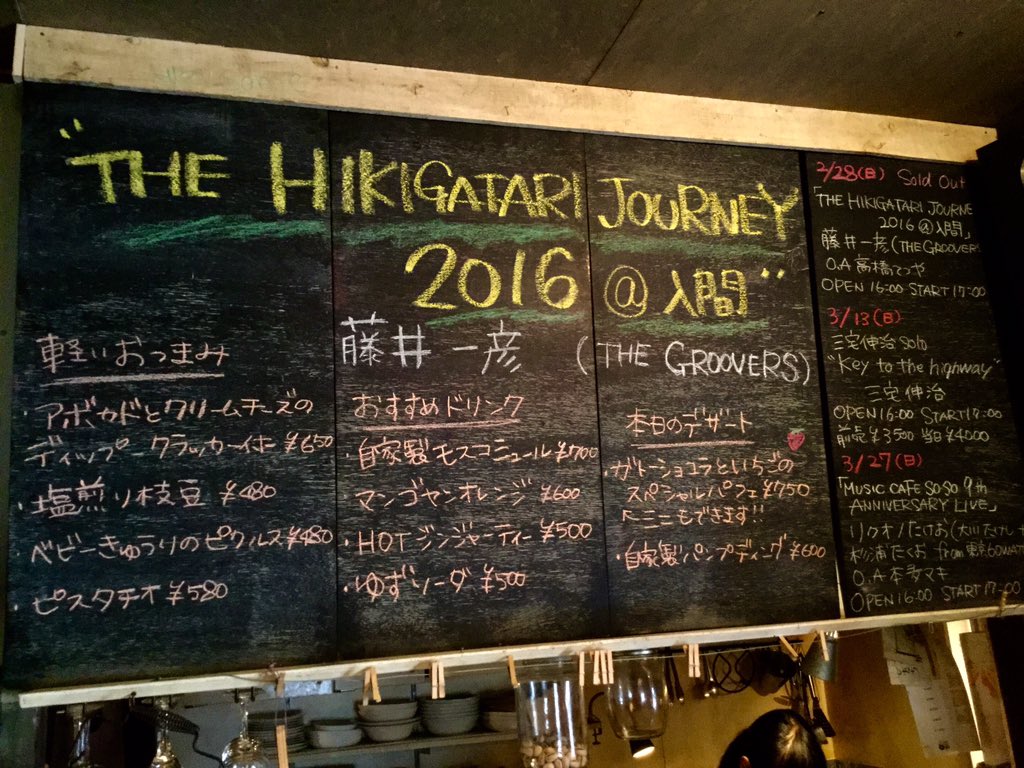 "THE HIKIGATARI JOURNEY
2016 @ 入間"
藤井一彦 (THE GROOVERS)
軽いおつまみ
・アボカドとクリームチーズの
ディップークラッカー付 ¥650
・塩煎り枝豆 ¥480
・ベビーきゅうりのピクルス ¥480
・ピスタチオ ¥580
おすすめドリンク
・自家製モスコミュール ¥700
マンゴヤンオレンジ ¥600
・HOTジンジャーティー ¥500
・ゆずソーダ ¥500
本日のデザート
・ガトーショコラといちごの
スペシャルパフェ ¥750
ミニもできます!!
・自家製パンプディング ¥600
2/28(日) Sold Out
「THE HIKIGATARI JOURNE
2016 @入間」
藤井一彦 (THE GROOVERS
O.A 高橋てつや
OPEN 16:00 START 17:00
3/13(日)
三宅伸治 Solo
"Key to the highway"
三宅伸治
OPEN 16:00 START 17:00
前売¥3500 当日¥4000
3/27(日)
「MUSIC CAFE SO-SO 9th
ANNIVERSARY LIVE」
リクオ/たけお
杉浦たくお from 東京60WATT
O.A 本多マキ
OPEN 16:00 START 17:00